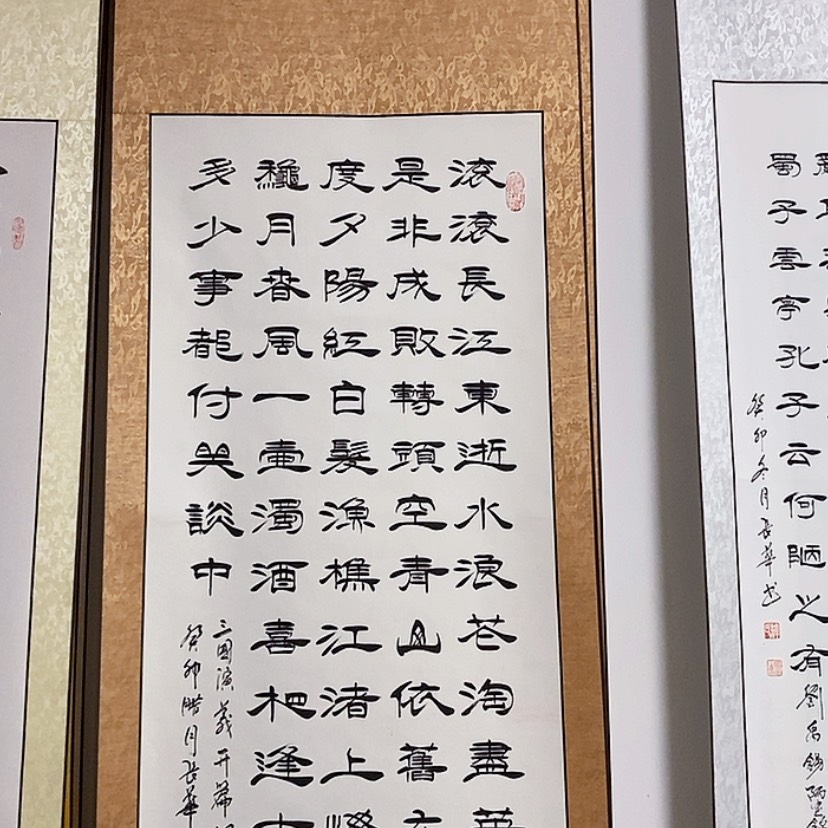 蜀子雲亭孔子云何陋之有
劉禹錫陋室銘
癸卯冬月长華书
滚滚長江東逝水浪花淘盡英
是非成敗轉頭空青山依舊在
度夕陽紅白髮漁樵江渚上慣
穐月春風一壺濁酒喜相逢古
多少事都付笑談中
三國演義开篇
癸卯腊月长華